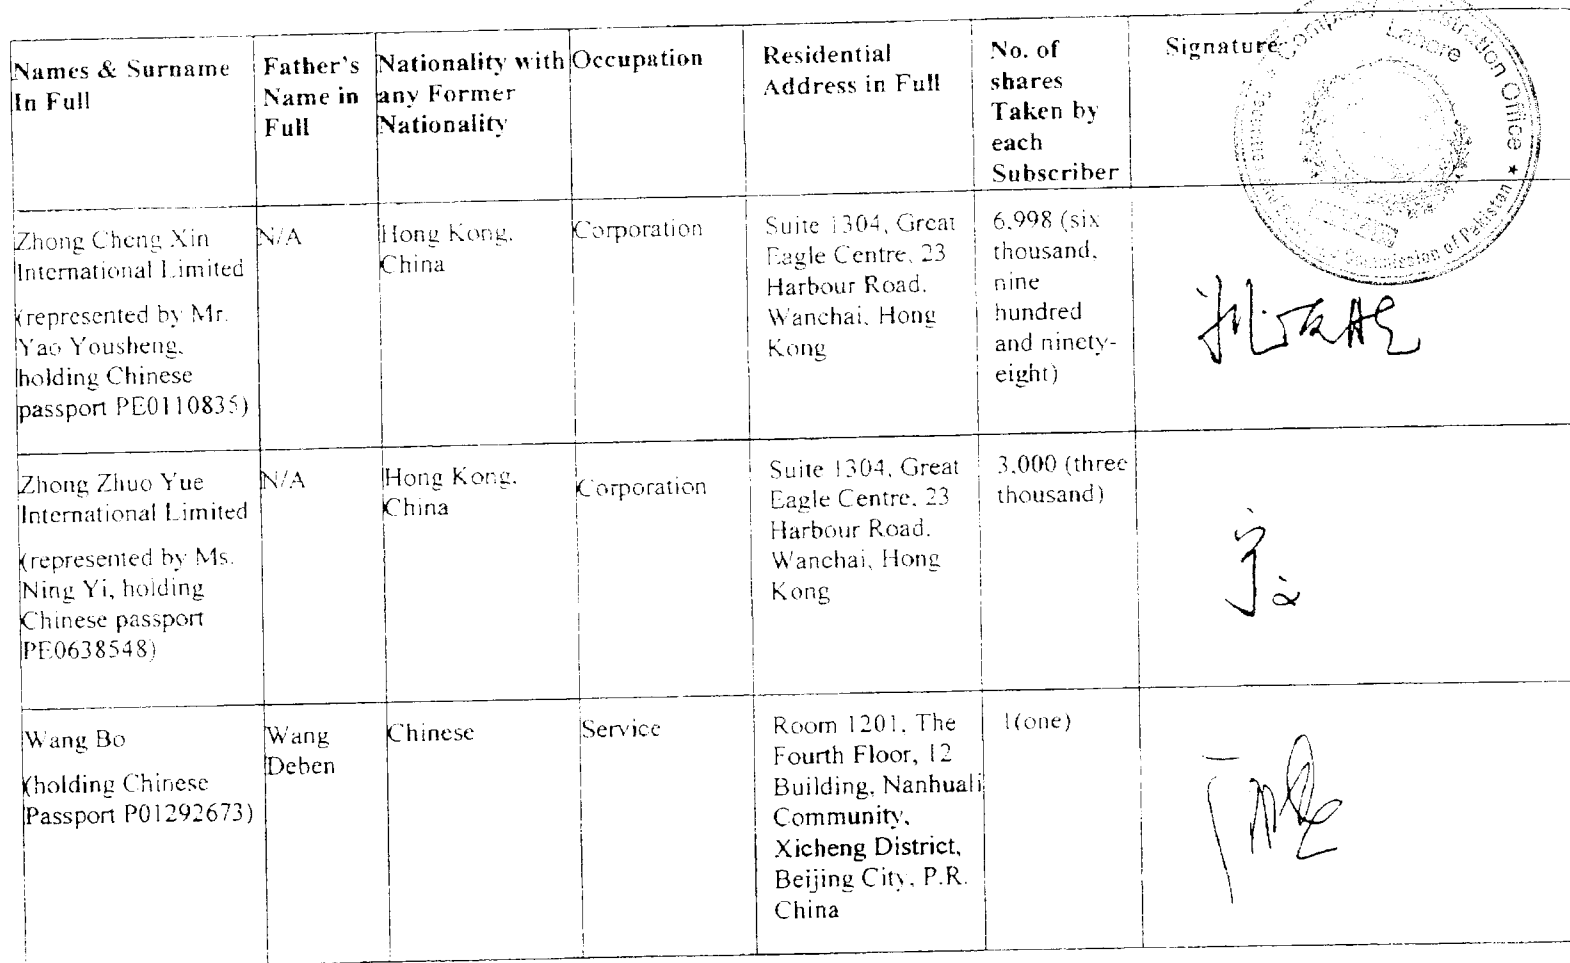 Names & Surname
In Full
Father's
Name in
Full
Nationality with
any Former
Nationality
Occupation
Residential
Address in Full
No. of
shares
Taken by
each
Subscriber
Signature
Company Registration Office
Lahore
Commission of Pakistan
Zhong Cheng Xin
International Limited
(represented by Mr.
Yao Yousheng,
holding Chinese
passport PE0110835)
N/A
Hong Kong,
China
Corporation
Suite 1304, Great
Eagle Centre, 23
Harbour Road,
Wanchai, Hong
Kong
6,998 (six
thousand,
nine
hundred
and ninety-
eight)
Zhong Zhuo Yue
International Limited
(represented by Ms.
Ning Yi, holding
Chinese passport
PE0638548)
N/A
Hong Kong,
China
Corporation
Suite 1304, Great
Eagle Centre, 23
Harbour Road,
Wanchai, Hong
Kong
3,000 (three
thousand)
Wang Bo
(holding Chinese
Passport P01292673)
Wang
Deben
Chinese
Service
Room 1201, The
Fourth Floor, 12
Building, Nanhuali
Community,
Xicheng District,
Beijing City, P.R.
China
1(one)